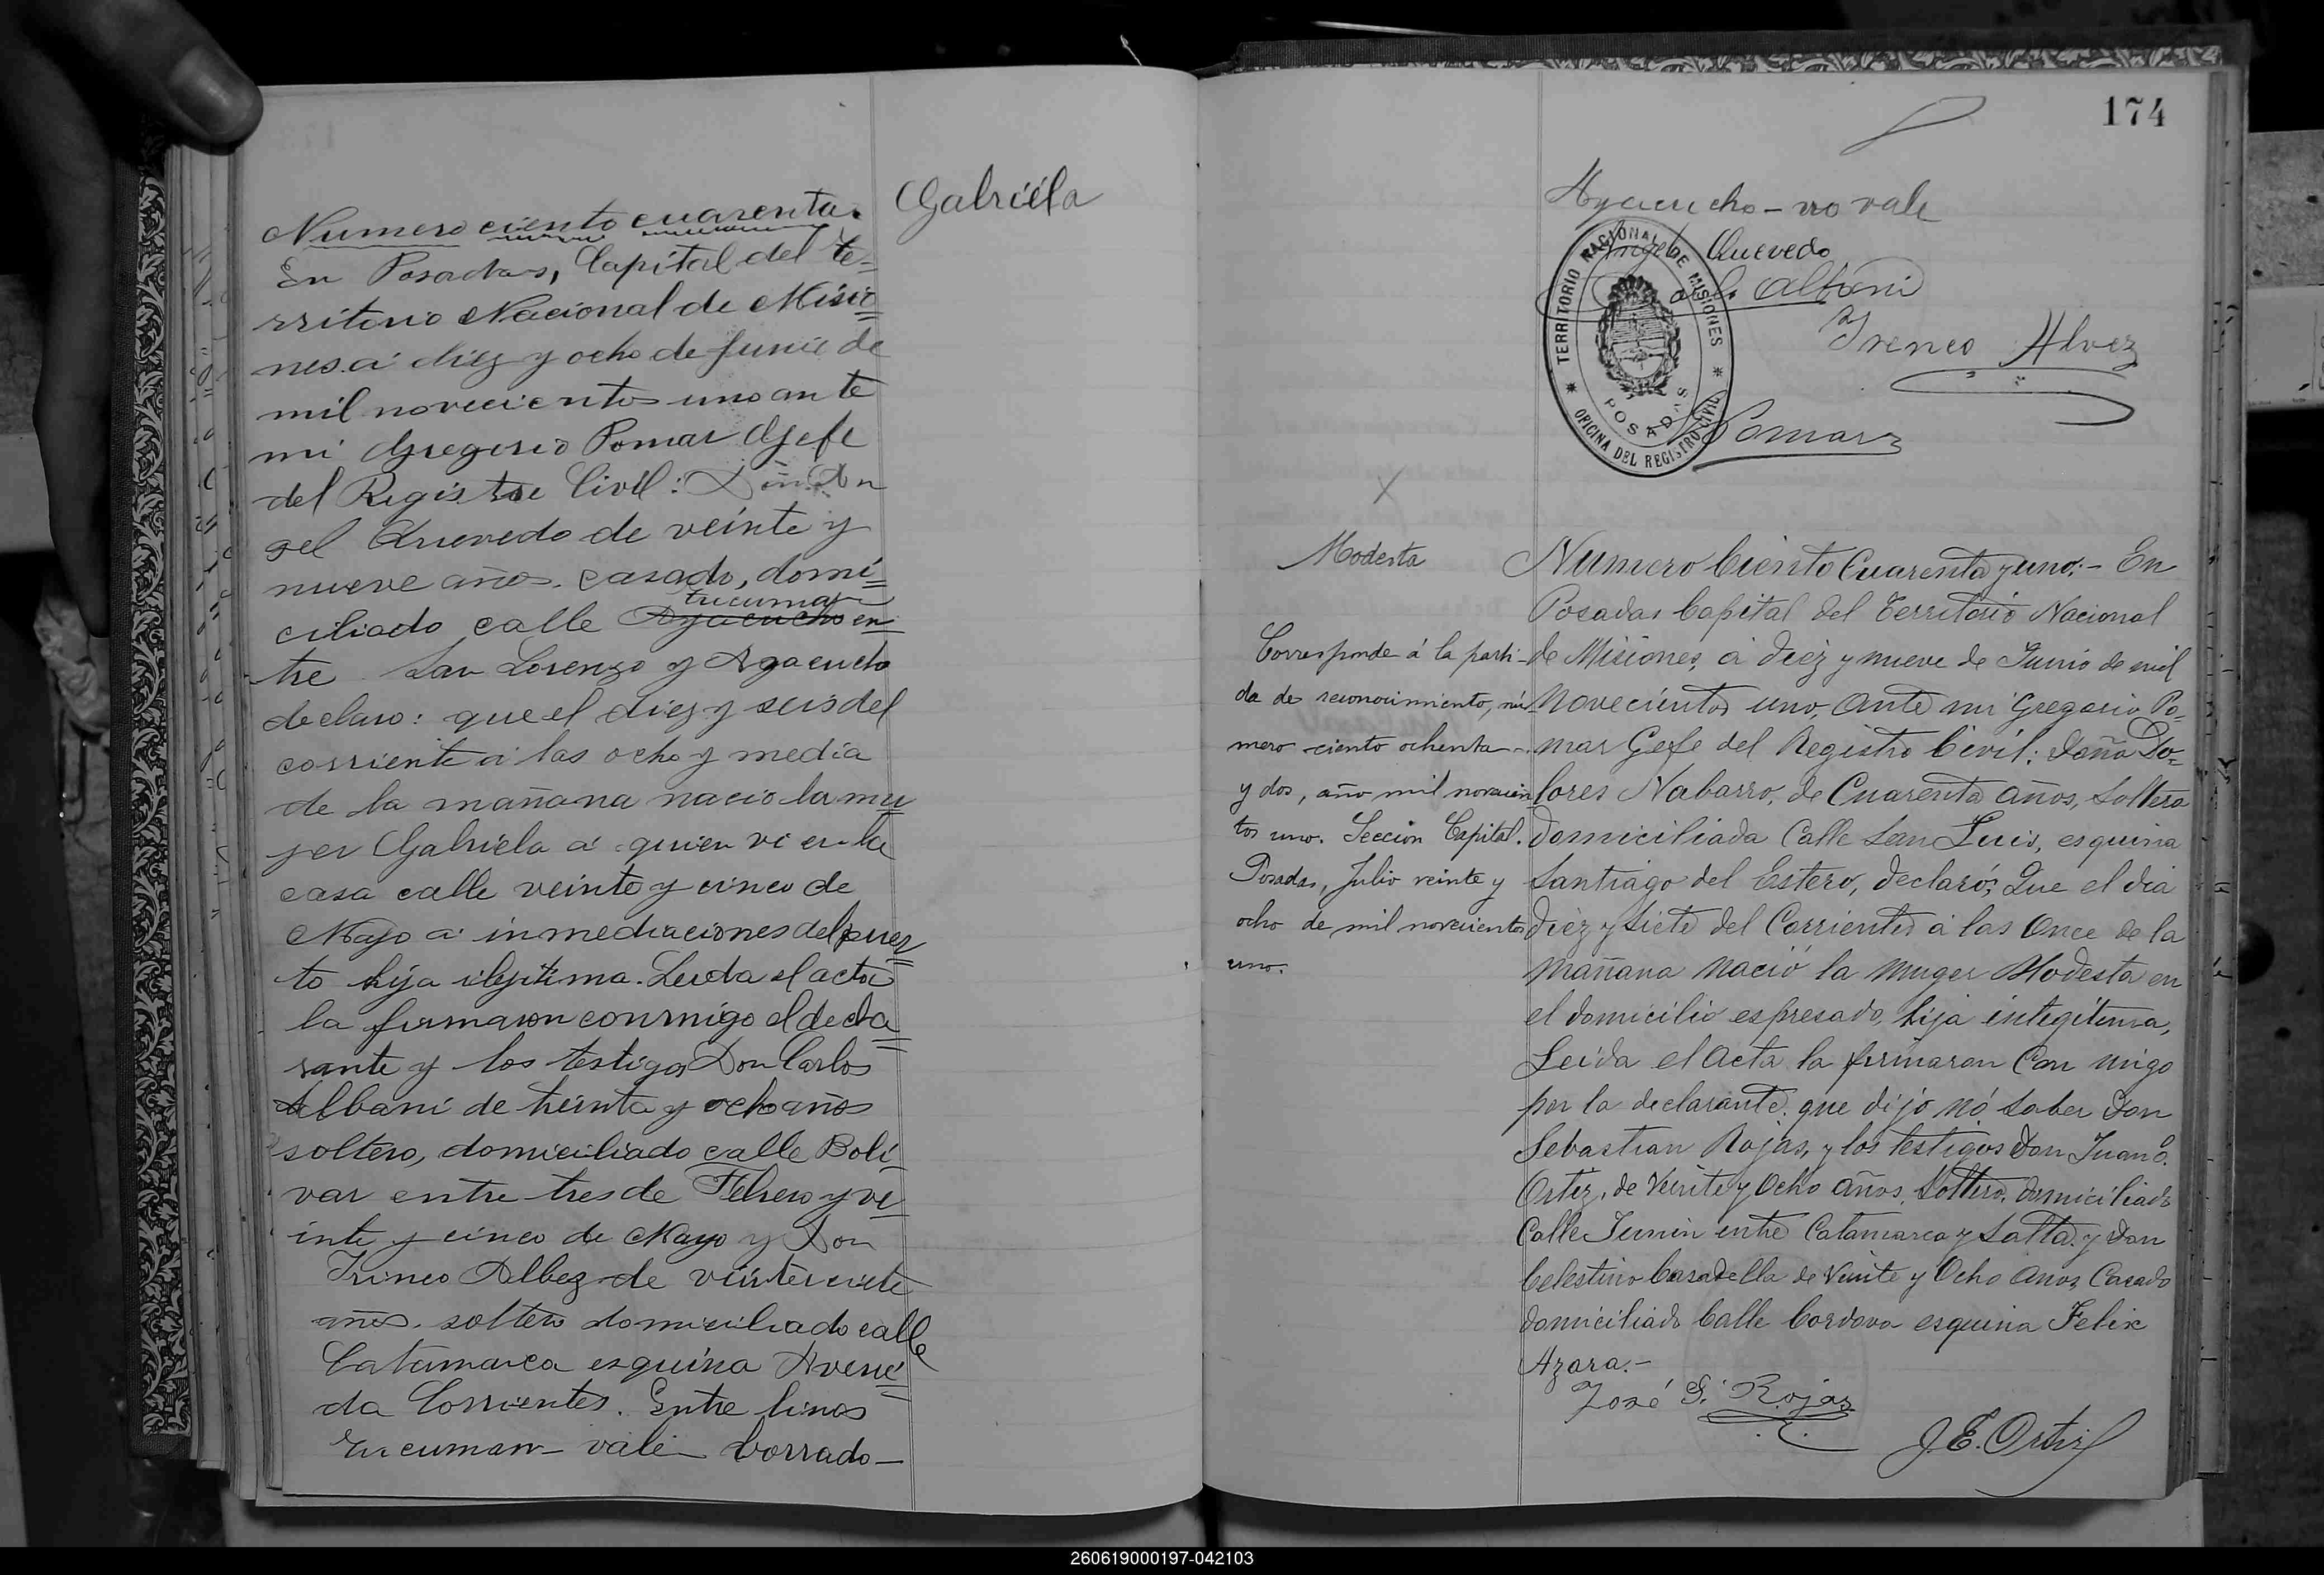 Gabriela
Numero ciento cuarenta.
En Posadas, Capital del te=
rritorio Nacional de Misio=
nes. á diez y ocho de Junio de
mil novecientos uno ante
mi Gregorio Pomar Gefe
del Registro Civil: Don An
gel Quevedo de veinte y
nueve años. casado, domi=
tucuman
ciliado calle Ayacucho en
tre San Lorenzo y Ayacucho
declaro: que el diez y seis del
corriente a las ocho y media
de la mañana nacio la mu
jer Gabriela a quien vi en la
casa calle veinte y cinco de
Mayo a inmediaciones del puer=
to hija ilegitima. Leida el acta
la firmaron conmigo el decla=
rante y los testigos Don Carlos
Albani de treinta y ocho años
soltero, domiciliado calle Boli
var entre tres de Febrero y ve
inte y cinco de Mayo y Don
Irineo Albez de veinte siete
años. soltero domiciliado calle
Catamarca esquina Aveni=
da Corrientes. Entre lineas
tucuman - vale - borrado -
174
Ayacucho - no vale
Angel Quevedo
C. Albani
Ireneo Alvez
TERRITORIO NACIONAL DE MISIONES
POSADAS
OFICINA DEL REGISTRO CIVIL
Pomar
X
Modesta
Corresponde á la parti-
da de reconocimiento, nú-
mero ciento ochenta
y dos, año mil novecien
tos uno. Seccion Capital.
Posadas, Julio veinte y
ocho de mil novecientos
uno.
Numero Ciento Cuarenta y uno:- En
Posadas Capital del Territorio Nacional
de Misiones, á diez y nueve de Junio de mil
novecientos uno, ante mi Gregorio Po=
mar Gefe del Registro Civil: doña Do=
lores Nabarro, de Cuarenta años, soltera
domiciliada Calle San Luis, esquina
Santiago del Estero, declaró; Que el dia
diez y siete del Corriente á las Once de la
mañana nació la muger Modesta en
el domicilio espresado, hija integitima,
Leida el acta la firmaron Con migo
por la declarante. que dijo nó saber don
Sebastian Rojas, y los testigos don Juan E.
Ortiz, de Veinte y Ocho años, soltero, domiciliado
Calle Junin entre Catamarca y Salta. y don
Celestino Casadella de Veinte y Ocho años, Casado
domiciliado Calle Cordova esquina Felix
Azara.-
José S. Rojas
J. E. Ortiz
260619000197-042103